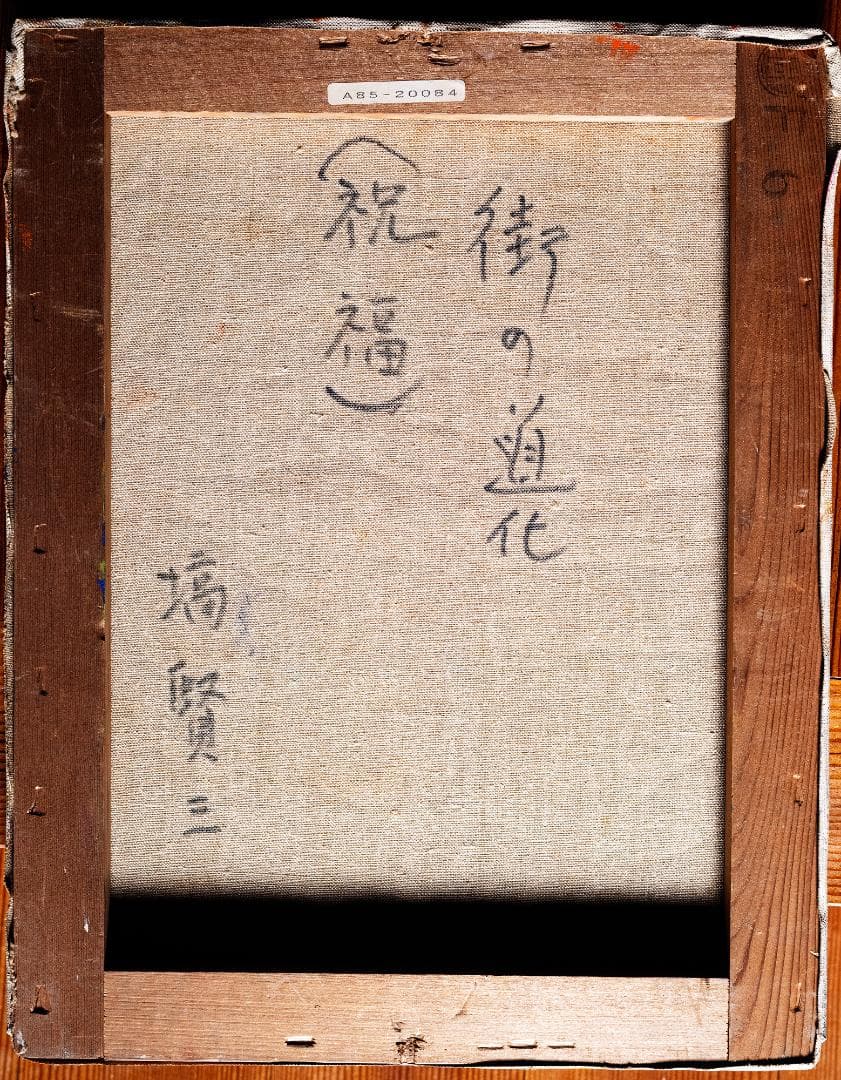 A85-20084
F 6
街の道化
(祝福)
塙賢三